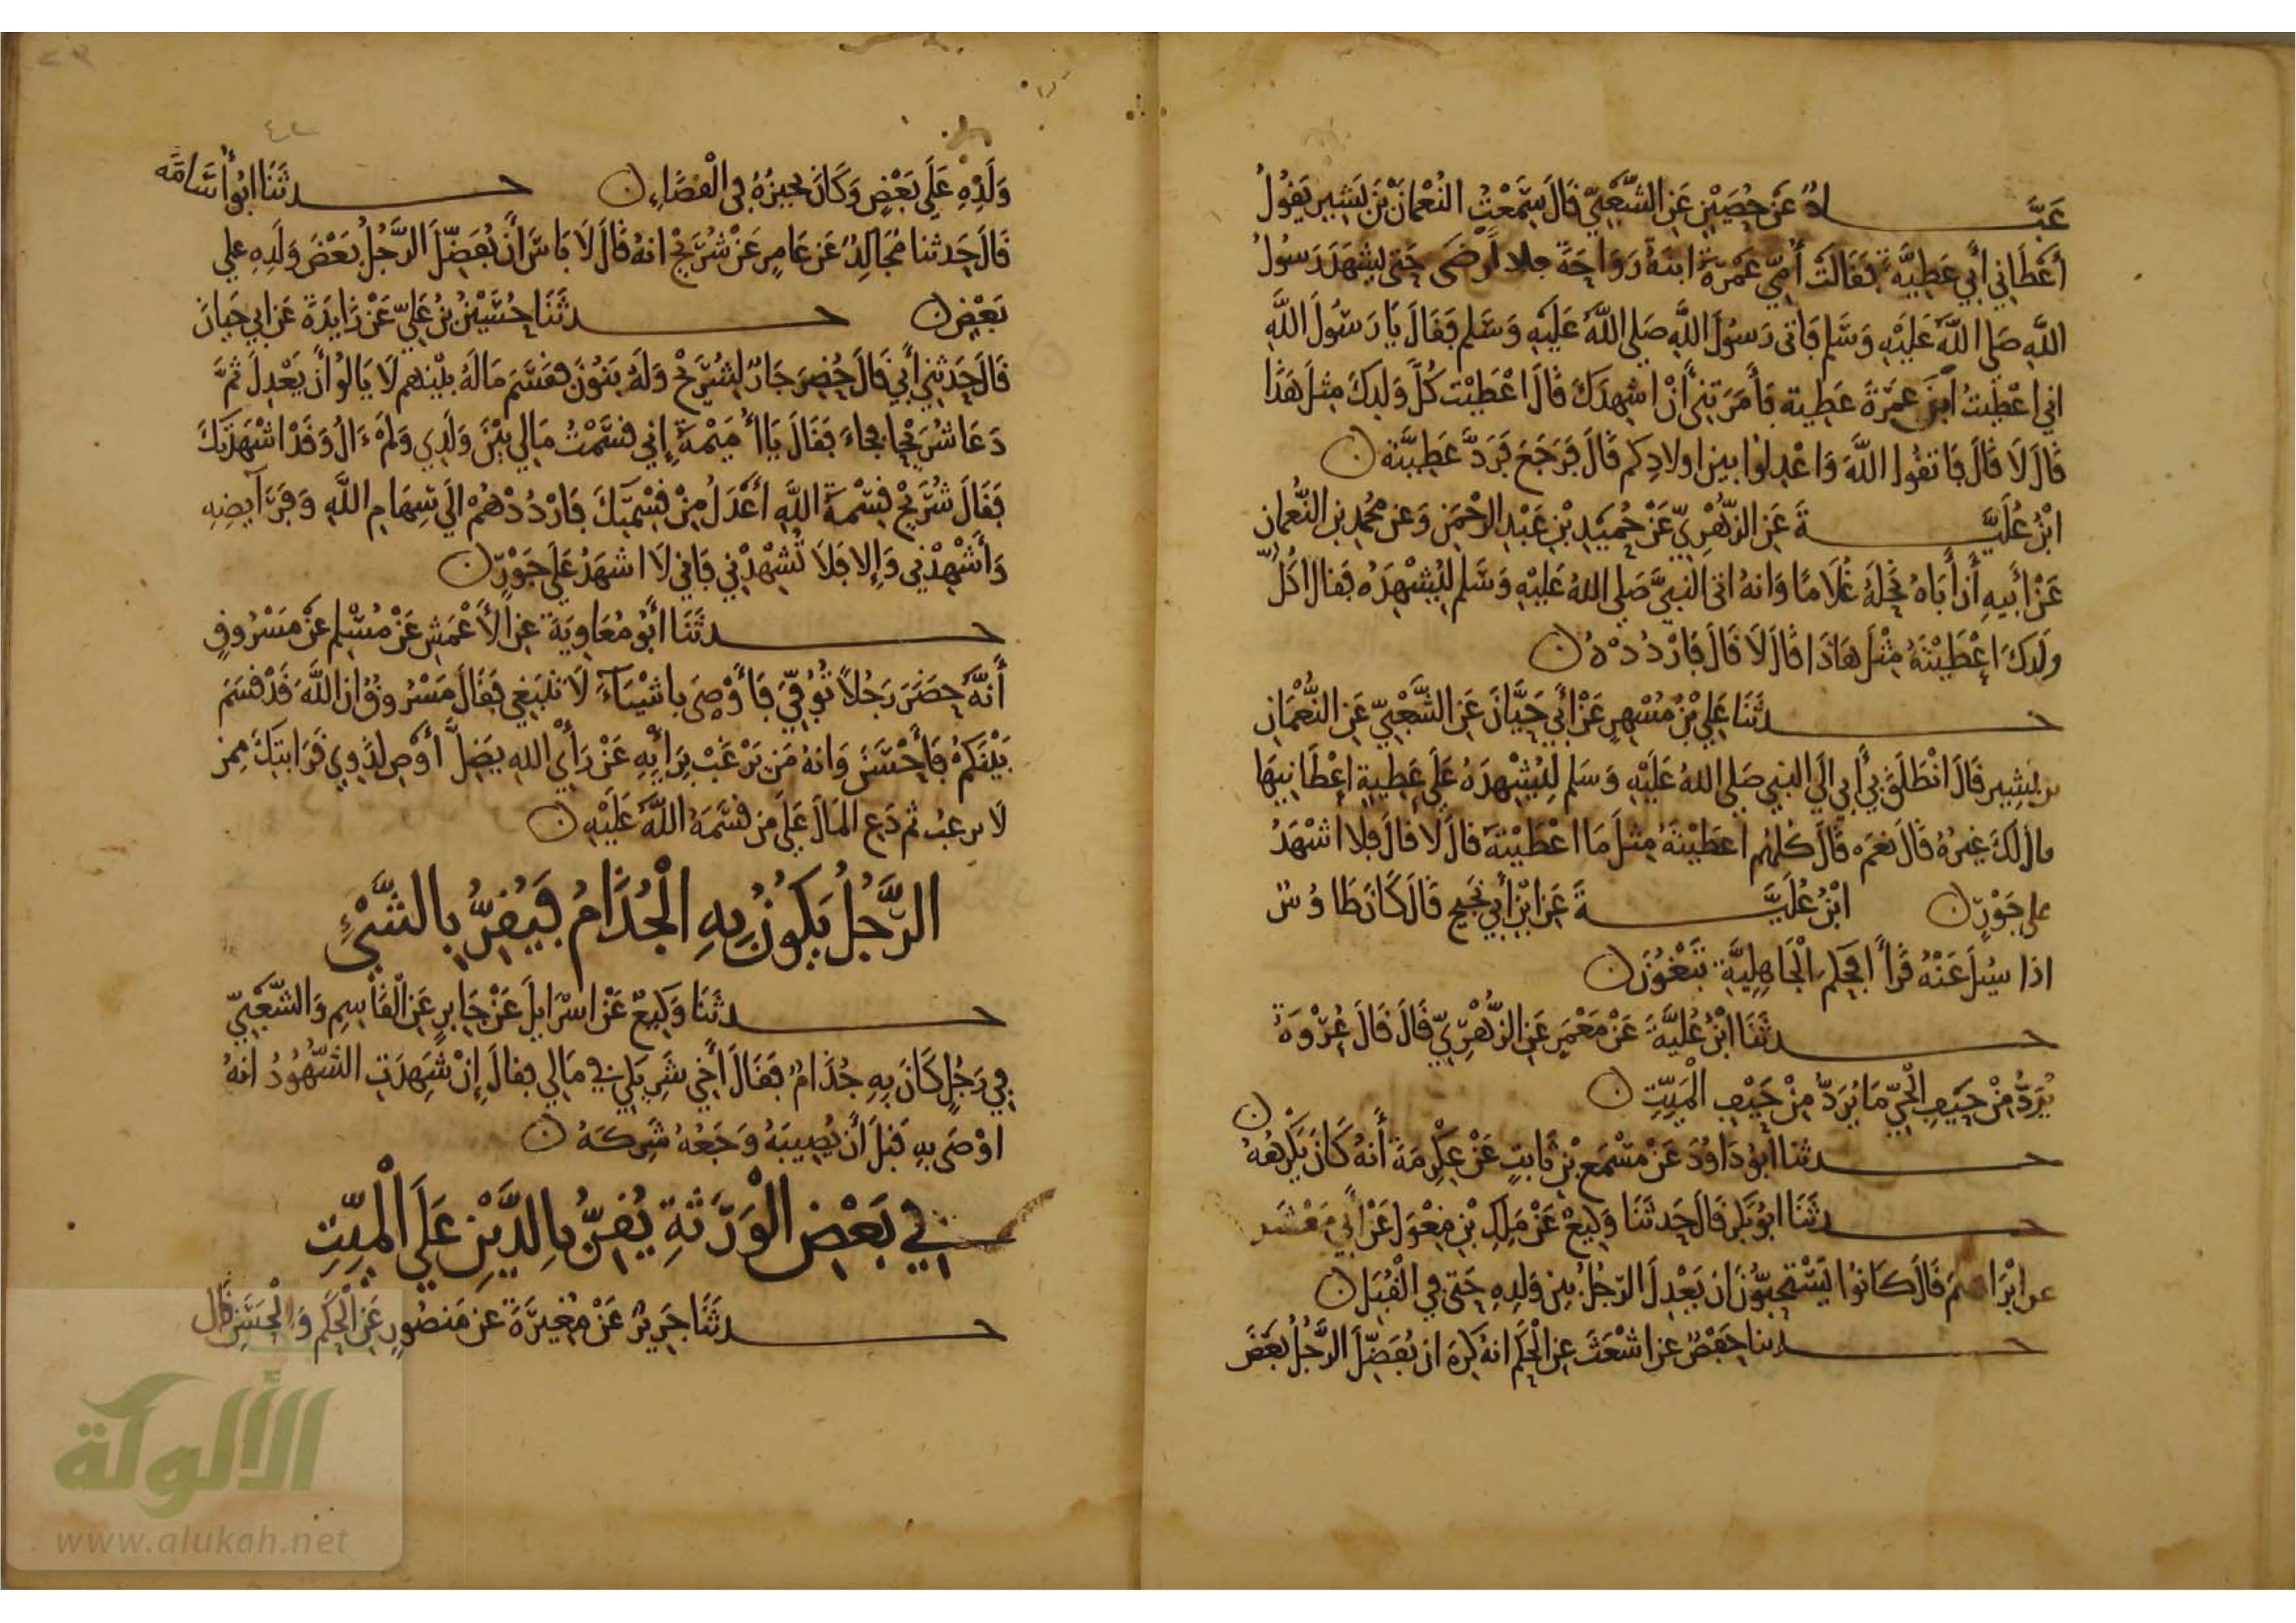 عَبَّادٌ عَن حُصَيْنٍ عَنِ الشَّعْبِيِّ قَالَ سَمِعْتُ النُّعْمَانَ بْنَ بَشِيرٍ يَقُولُ
أَعْطَانِي أَبِي عَطِيَّةً فَقَالَت أُمِّي عَمْرَةُ ابنَةُ رَوَاحَةَ فلا أَرْضَى حَتَّى يشهَدَ رَسُولُ
اللَّهِ صَلَّى اللَّهُ عَلَيْهِ وَسَلَّم فَأتى رَسُولَ اللَّهِ صَلى اللَّهُ عَلَيْهِ وَسَلم فَقَالَ يَا رَسُولَ اللَّهِ
اني اعْطَيتُ ابْنَ عَمْرَةَ عَطِية فَأَمَرَتنِي أَنْ اشهِدَكَ قَالَ اعْطَيْت كُلَّ وَلَدِكَ مِثلَ هَذَا
قَالَ لَا قَالَ فَاتَّقُوا اللَّهَ وَاعْدِلُوا بين اولادِكم قَالَ فَرَجَعَ فَرَدَّ عَطِيَّتَهُ
ابْنُ عُلَيَّةَ عَنِ الزُّهْرِيِّ عَنْ حُمَيْدِ بْنِ عَبْدِ الرَّحْمَن وَعَن مُحَمد بن النُّعمان
عَنْ أَبِيهِ أَنَّ أَبَاهُ نَحَلَهُ غُلَامًا وَانهُ اتى النبيَّ صَلى اللهُ عَلَيْهِ وَسَلم لِيُشْهِدَهُ فَقال اكُلَّ
ولَدكَ اعْطَيْتَهُ مِثْلَ هَاذَا قَالَ لَا قَالَ فَارْدُدْهُ
حدثَنَا عَلِيُّ بْنُ مُسْهِرٍ عَنْ أَبِي حَيَّانَ عَنِ الشَّعْبِيِّ عَنِ النُّعْمَانِ
بن بشِير قَالَ انْطَلَقَ بِي أَبِي الَى النبي صَلى اللهُ عَلَيْهِ وَسَلم لِيُشْهِدَهُ عَلَى عَطِيةٍ اعْطَانِيهَا
قال لَكَ غيرُهُ قَالَ نعَم قَالَ كُلهُم اعطَيْتهُ مِثلَ مَا اعْطَيْتَهُ قَالَ لَا قالَ فلا اشْهَدُ
على جَوْرٍ ابْنُ عُلَيَّةَ عَنِ ابْنِ أَبِي نَجِيح قَالَ كَانَ طَاوُس
اذا سُئِلَ عَنْهُ قَرَأَ افحكم الْجَاهِلِيَّةِ تَبْغُونَ
حدثَنَا ابْنُ عُلَيَّةَ عَنْ مَعْمَرٍ عَنِ الزُّهْرِيِّ قَالَ قَالَ عُرْوَةُ
يُرَدُّ مِنْ حَيْفِ الْحَيِّ مَا يُرَدُّ مِنْ حَيْفِ الْمَيِّتِ
حدثنا ابُو دَاوُدَ عَنْ مِسْمَعِ بْنِ ثَابِتٍ عَنْ عِكْرِمَةَ أَنهُ كَانَ يَكْرَهُهُ
حدثَنَا ابُو بَكر قَالَ حَدثَنَا وَكِيعٌ عَنْ مَلِكِ بْنِ مِغْوَل عَنْ أَبِي مَعْشَر
عن ابْرَاهيم قَالَ كَانُوا يَسْتَحِبُّونَ ان يَعْدِلَ الرّجُلُ بين وَلَدِهِ حَتى فِي الْقُبَل
حدثنا حَفْصٌ عن اشْعَثَ عن الْحَكَمِ انهُ كَرِهَ ان يُفَضِّلَ الرَّجُلُ بَعْضَ
وَلَدِهِ عَلَى بَعْضٍ وَكَانَ يجيزُهُ فِي الْقضَاءِ حدثَنَا ابُو أُسَامَة
قَالَ حَدثنا مُجَالِدٌ عَن عَامِرٍ عَنْ شُرَيْحٍ انهُ قَالَ لَا بَاسَ أَنْ يُفَضِّلَ الرَّجُلُ بَعْضَ وَلَدِهِ علي
بَعْضٍ حدثَنَا حُسَيْنُ بْنُ عَلِيّ عَنْ زَايِدَةَ عَن ابي حَيان
قَالَ حَدثَنِي أَبِي قَالَ حُضِرَ جَارٌ لِشُرَيْحٍ وَلَهُ بَنُونَ فقسَمَ مَالَهُ بَيْنَهم لَا يَالُوا أَنْ يَعْدِلَ ثُمَّ
دَعَا شُرَيْحًا فجاءَ فَقَالَ يَا أُ مَيْمَةَ إِنِي قسَمْتُ مَالِي بَيْنَ وَلَدِي وَلَمْ ءَالُ وَقَدْ اشْهَدتكَ
فَقَالَ شُرَيْحٌ قِسْمَةُ اللَّهِ أَعْدَلُ مِنْ قِسْمَتِكَ فَارْدُدْهُمْ الَى سِهَامِ اللَّهِ وَفَرَآيضِهِ
وَأَشْهِدْنِي وَإِلا فَلَا تُشْهِدْنِي فَاني لَا اشهَدُ عَلَى جَوْرٍ
حدثَنَا أَبُو مُعَاوِيَةَ عَنِ الأَعْمَشِ عَنْ مُسْلِمٍ عَنْ مَسْرُوقٍ
أَنَّهُ حَضَرَ رَجُلاً تُوُفِّيَ فَأَوْصَى باشْيَاءَ لَا تَنْبَغِي فَقَالَ مَسْرُوقٌ ان اللَّهَ قَدْ قسَمَ
بَيْنَكُمْ فَأَحْسَنَ وَانهُ مَن يَرْغَبْ بِرَايِهِ عَنْ رَأْيِ الله يَضِلَّ أَوْصِ لذَوِي قَرَابتِكَ مِمن
لَا يرغبُ ثم دَعِ المَالَ عَلَى من قسَمَهُ اللَّهُ عَلَيْهِ
الرَّجُلُ يَكُونُ بِهِ الْجُذَامُ فَيُقِرُّ بِالشَّيْءِ
حدثَنَا وَكِيعٌ عَنْ اسْرَايلَ عَنْ جَابِرٍ عَنِ الْقَاسِمِ وَالشَّعْبِيِّ
فِي رَجُلٍ كَانَ بِهِ جُذَامٌ فَقَالَ أَخِي شَرِيكِي فِي مَالِي فقالَ إِنْ شَهِدَتِ الشُّهُودُ انهُ
اوْصَى بِهِ قَبْلَ أَنْ يُصِيبَهُ وَجَعُهُ شَرِكَهُ
فِي بَعْضِ الْوَرَثَةِ يُقِرُّ بِالدَّيْنِ عَلَى الْمَيِّتِ
حدثَنَا جَرِيرٌ عَنْ مُغِيرَةَ عن مَنصُورٍ عَنْ الْحَكَمِ وَالْحَسَنِ قَال
الألوكة
www.alukah.net